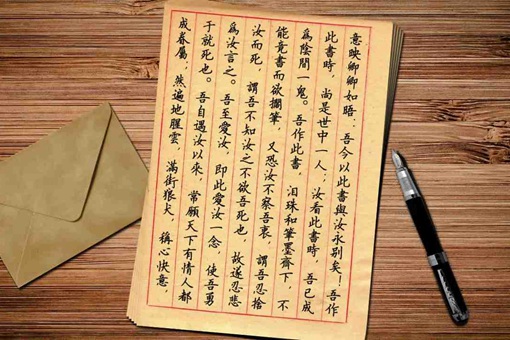 意映卿卿如晤:吾今以此書與汝永別矣!吾作
此書時,尚是世中一人,汝看此書時,吾已成
爲陰間一鬼。吾作此書,泪珠和筆墨齊下,不
能竟書而欲擱筆,又恐汝不察吾衷,謂吾忍捨
汝而死,謂吾不知汝之不欲吾死也,故遂忍悲
爲汝言之。吾至愛汝,即此愛汝一念,使吾勇
于就死也。吾自遇汝以來,常願天下有情人都
成眷屬,然遍地腥雲,滿街狼犬,稱心快意,